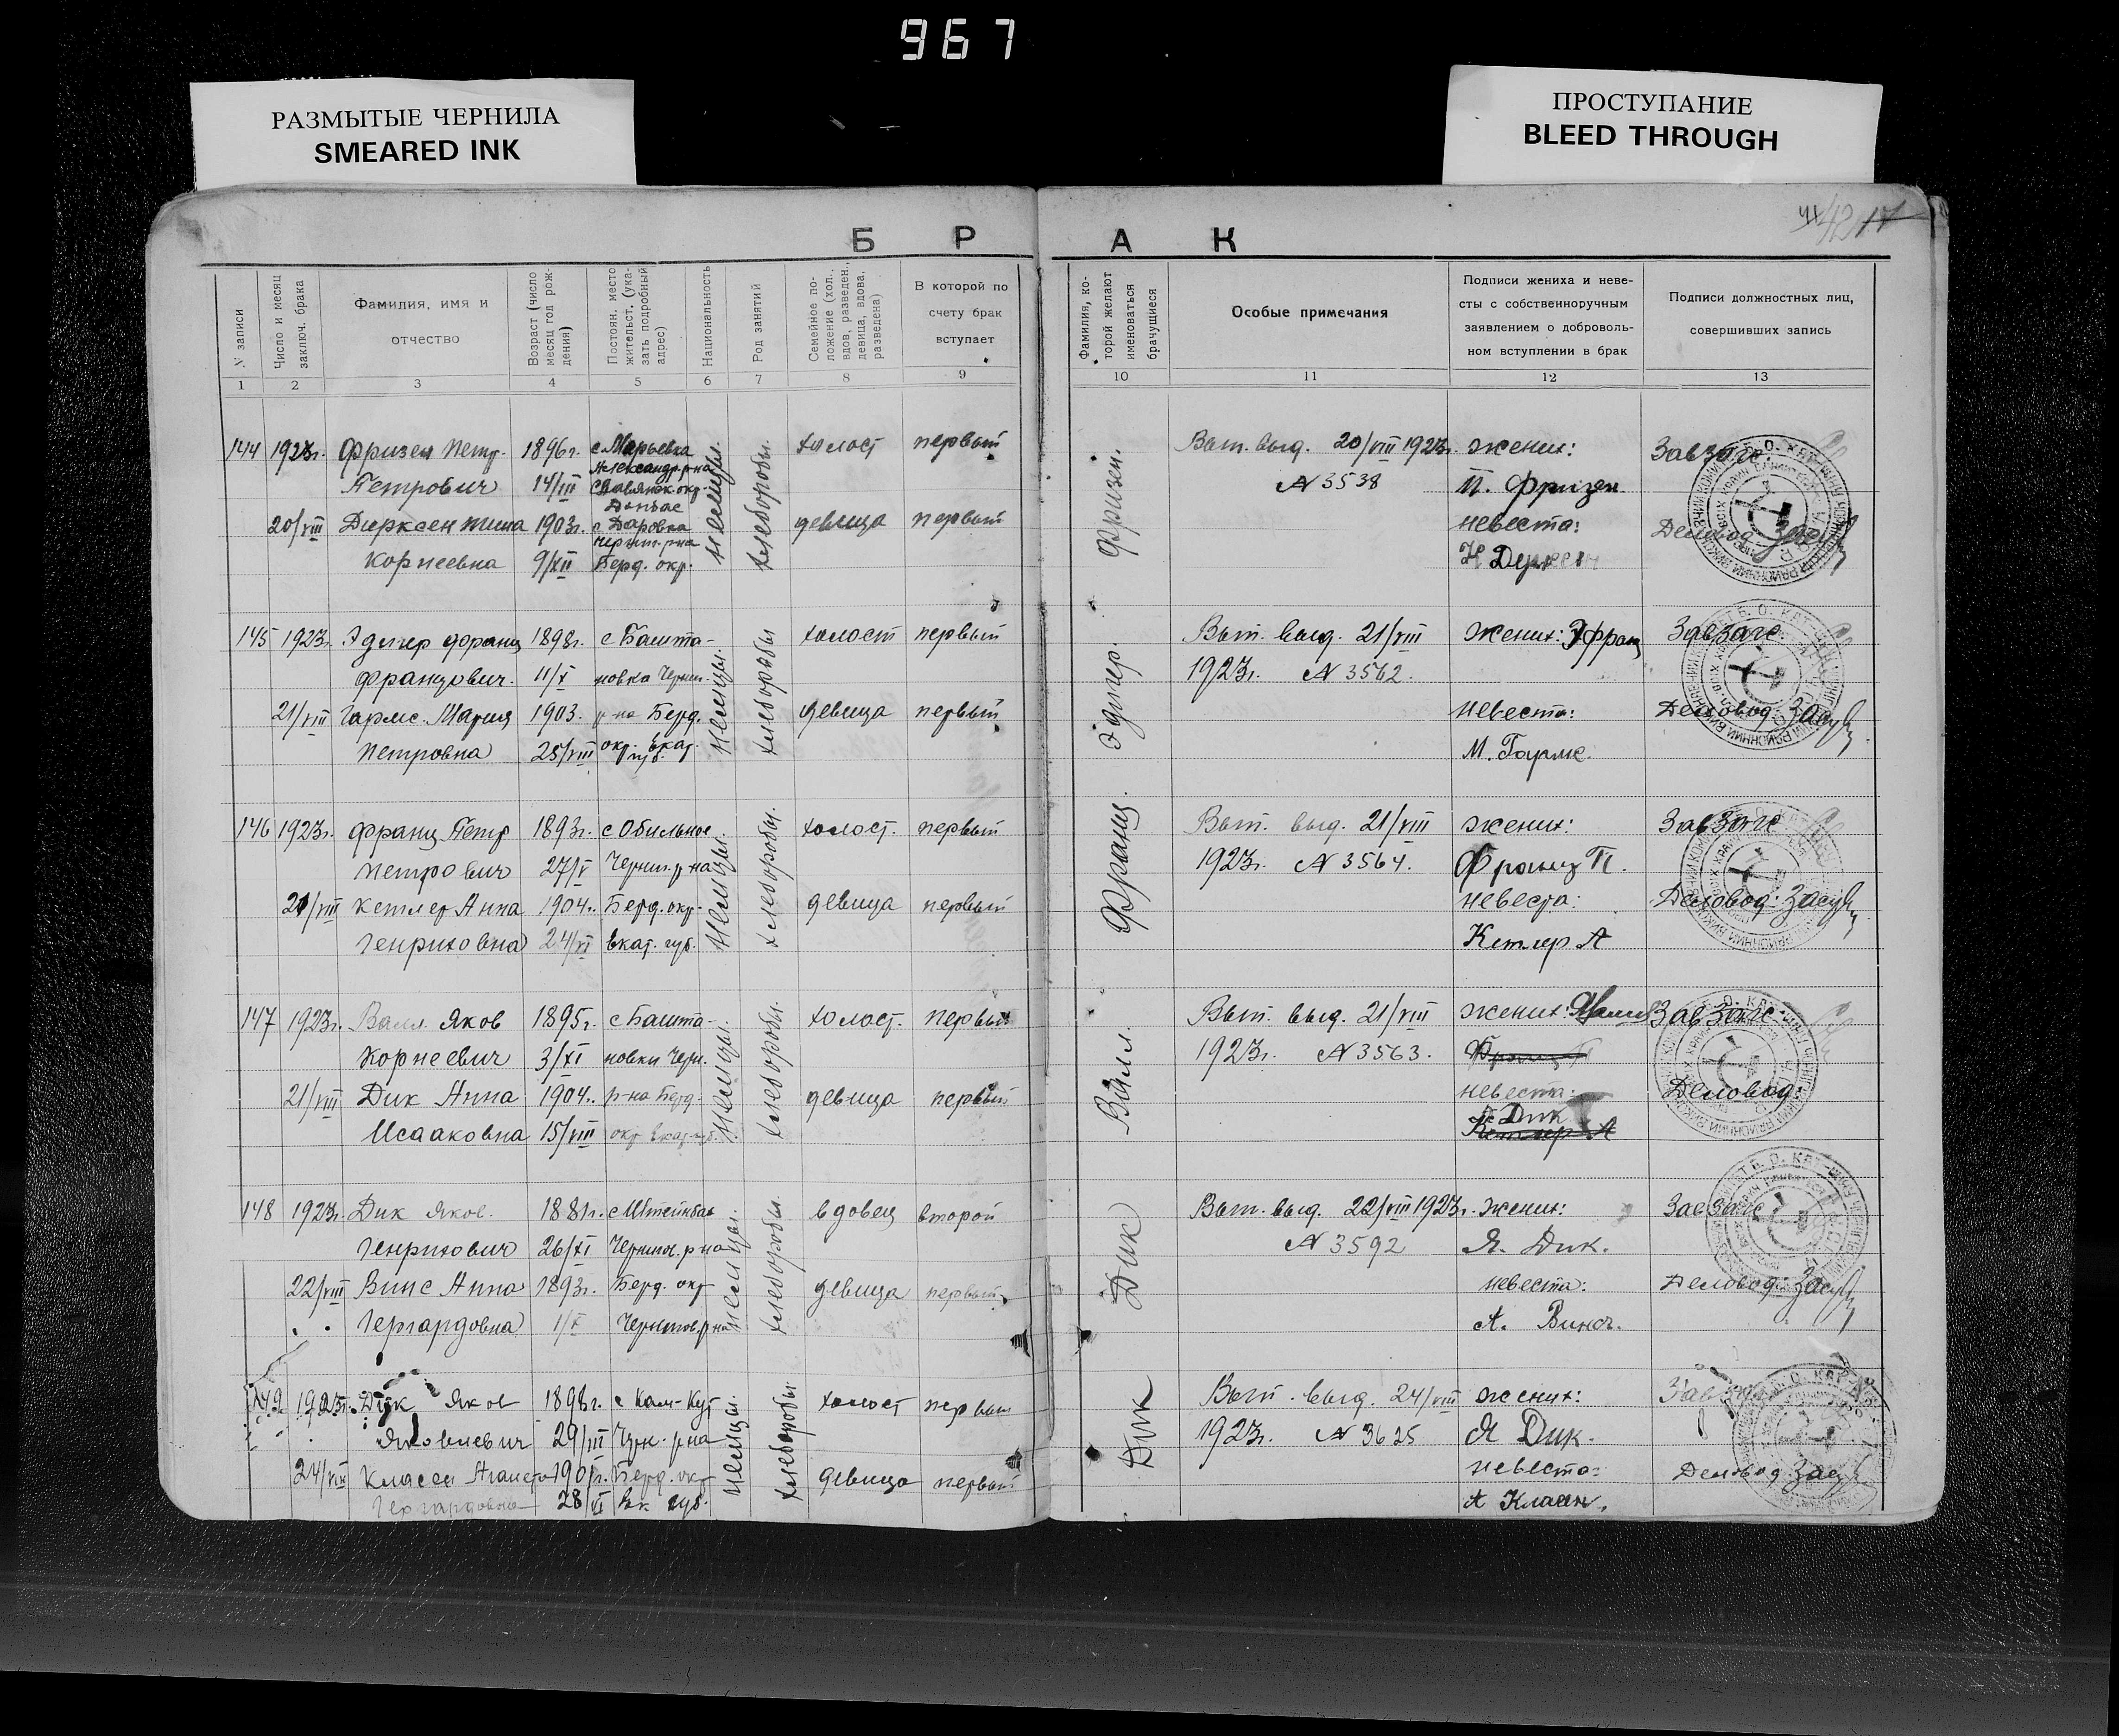 967
РАЗМЫТЫЕ ЧЕРНИЛА
SMEARED INK
ПРОСТУПАНИЕ
BLEED THROUGH
Б Р А К
N записи
Число и месяц заключ. брака
Фамилия, имя и отчество
Возраст (число месяц год рождения)
Постоян. место жительст. (указать подробный адрес)
Национальность
Род занятий
Семейное положение (хол., вдов, разведен., девица, вдова, разведена)
В которой по счету брак вступает
Фамилия, которой желают именоваться брачущиеся
Особые примечания
Подписи жениха и невесты с собственноручным заявлением о добровольном вступлении в брак
Подписи должностных лиц, совершивших запись
1 2 3 4 5 6 7 8 9 10 11 12 13
144 1923г. Фризен Петр 1896г. с Марьевка холост первый Вып. выд. 20/VIII 1923г. жених: Завзагс
Александр. р-на
Петрович 14/III Славянск. окр. N 3538 П. Фризен
Донбас
20/VIII Дирксен 1903г. с Даровка девица первый невеста: Деловод
Корнеевна 9/XII Берд. окр.
немцы. хлеборобы. Фризен.
145 1923г. Эдигер Франц 1898г. с Башта- холост первый Вып. выд. 21/VIII жених: Э Франц Завзагс
Францович. 11/X новка Черниг. 1923г. N 3562.
21/VIII Гармс. Мария 1903. р-на Берд. девица первый невеста: Деловод
Петровна 25/VIII окр. Екат. губ. М. Гармс.
немцы. хлеборобы Эдигер.
146 1923г. Франц Петр 1893г. с Обильное холост. первый Вып. выд. 21/VIII жених: Завзагс
Петрович 27/V Черниг. р-на 1923г. N 3564. Франц П.
21/VIII Кетлер Анна 1904г. Берд. окр. девица первый невеста: Деловод:
Генриховна 24/XI Екат. губ. Кетлер А
немцы. хлеборобы. Франц.
147 1923г. Валл Яков 1895г. с Башта- холост. первый Вып. выд. 21/VIII жених: Завзагс
Корнеевич 3/XI новки Черн. 1923г. N 3563. Франц П
21/VIII Дик Анна 1904г. р-на Берд. девица первый невеста: Деловод:
Исааковна 15/VIII окр Екат. губ. Дик
Кетлер А
немцы. хлеборобы. Валл.
148 1923г. Дик Яков. 1881г. с Штейнбах вдовец второй Вып. выд. 22/VIII 1923г. жених: Завзагс
Генрихович 26/XI Чернигов. р-на N 3592 Я. Дик.
22/VIII Винс Анна 1893г. Берд. окр девица первый невеста: Деловод:
Гергардовна 1/X Чернигов. р-на А. Винс.
немцы. хлеборобы. Дик
149 1923г. Дик Яков 1898г. с Кам-Кут холост первый Вып. выд. 24/VIII жених: Завзагс
Яковлевич 29/III Черн. р-на 1923г. N 3625 Я Дик.
24/VIII Классен Берд. окр девица первый невеста: Деловод
Гергардовна 28/XI Ек губ. А Класен.
немцы. хлеборобы Дик